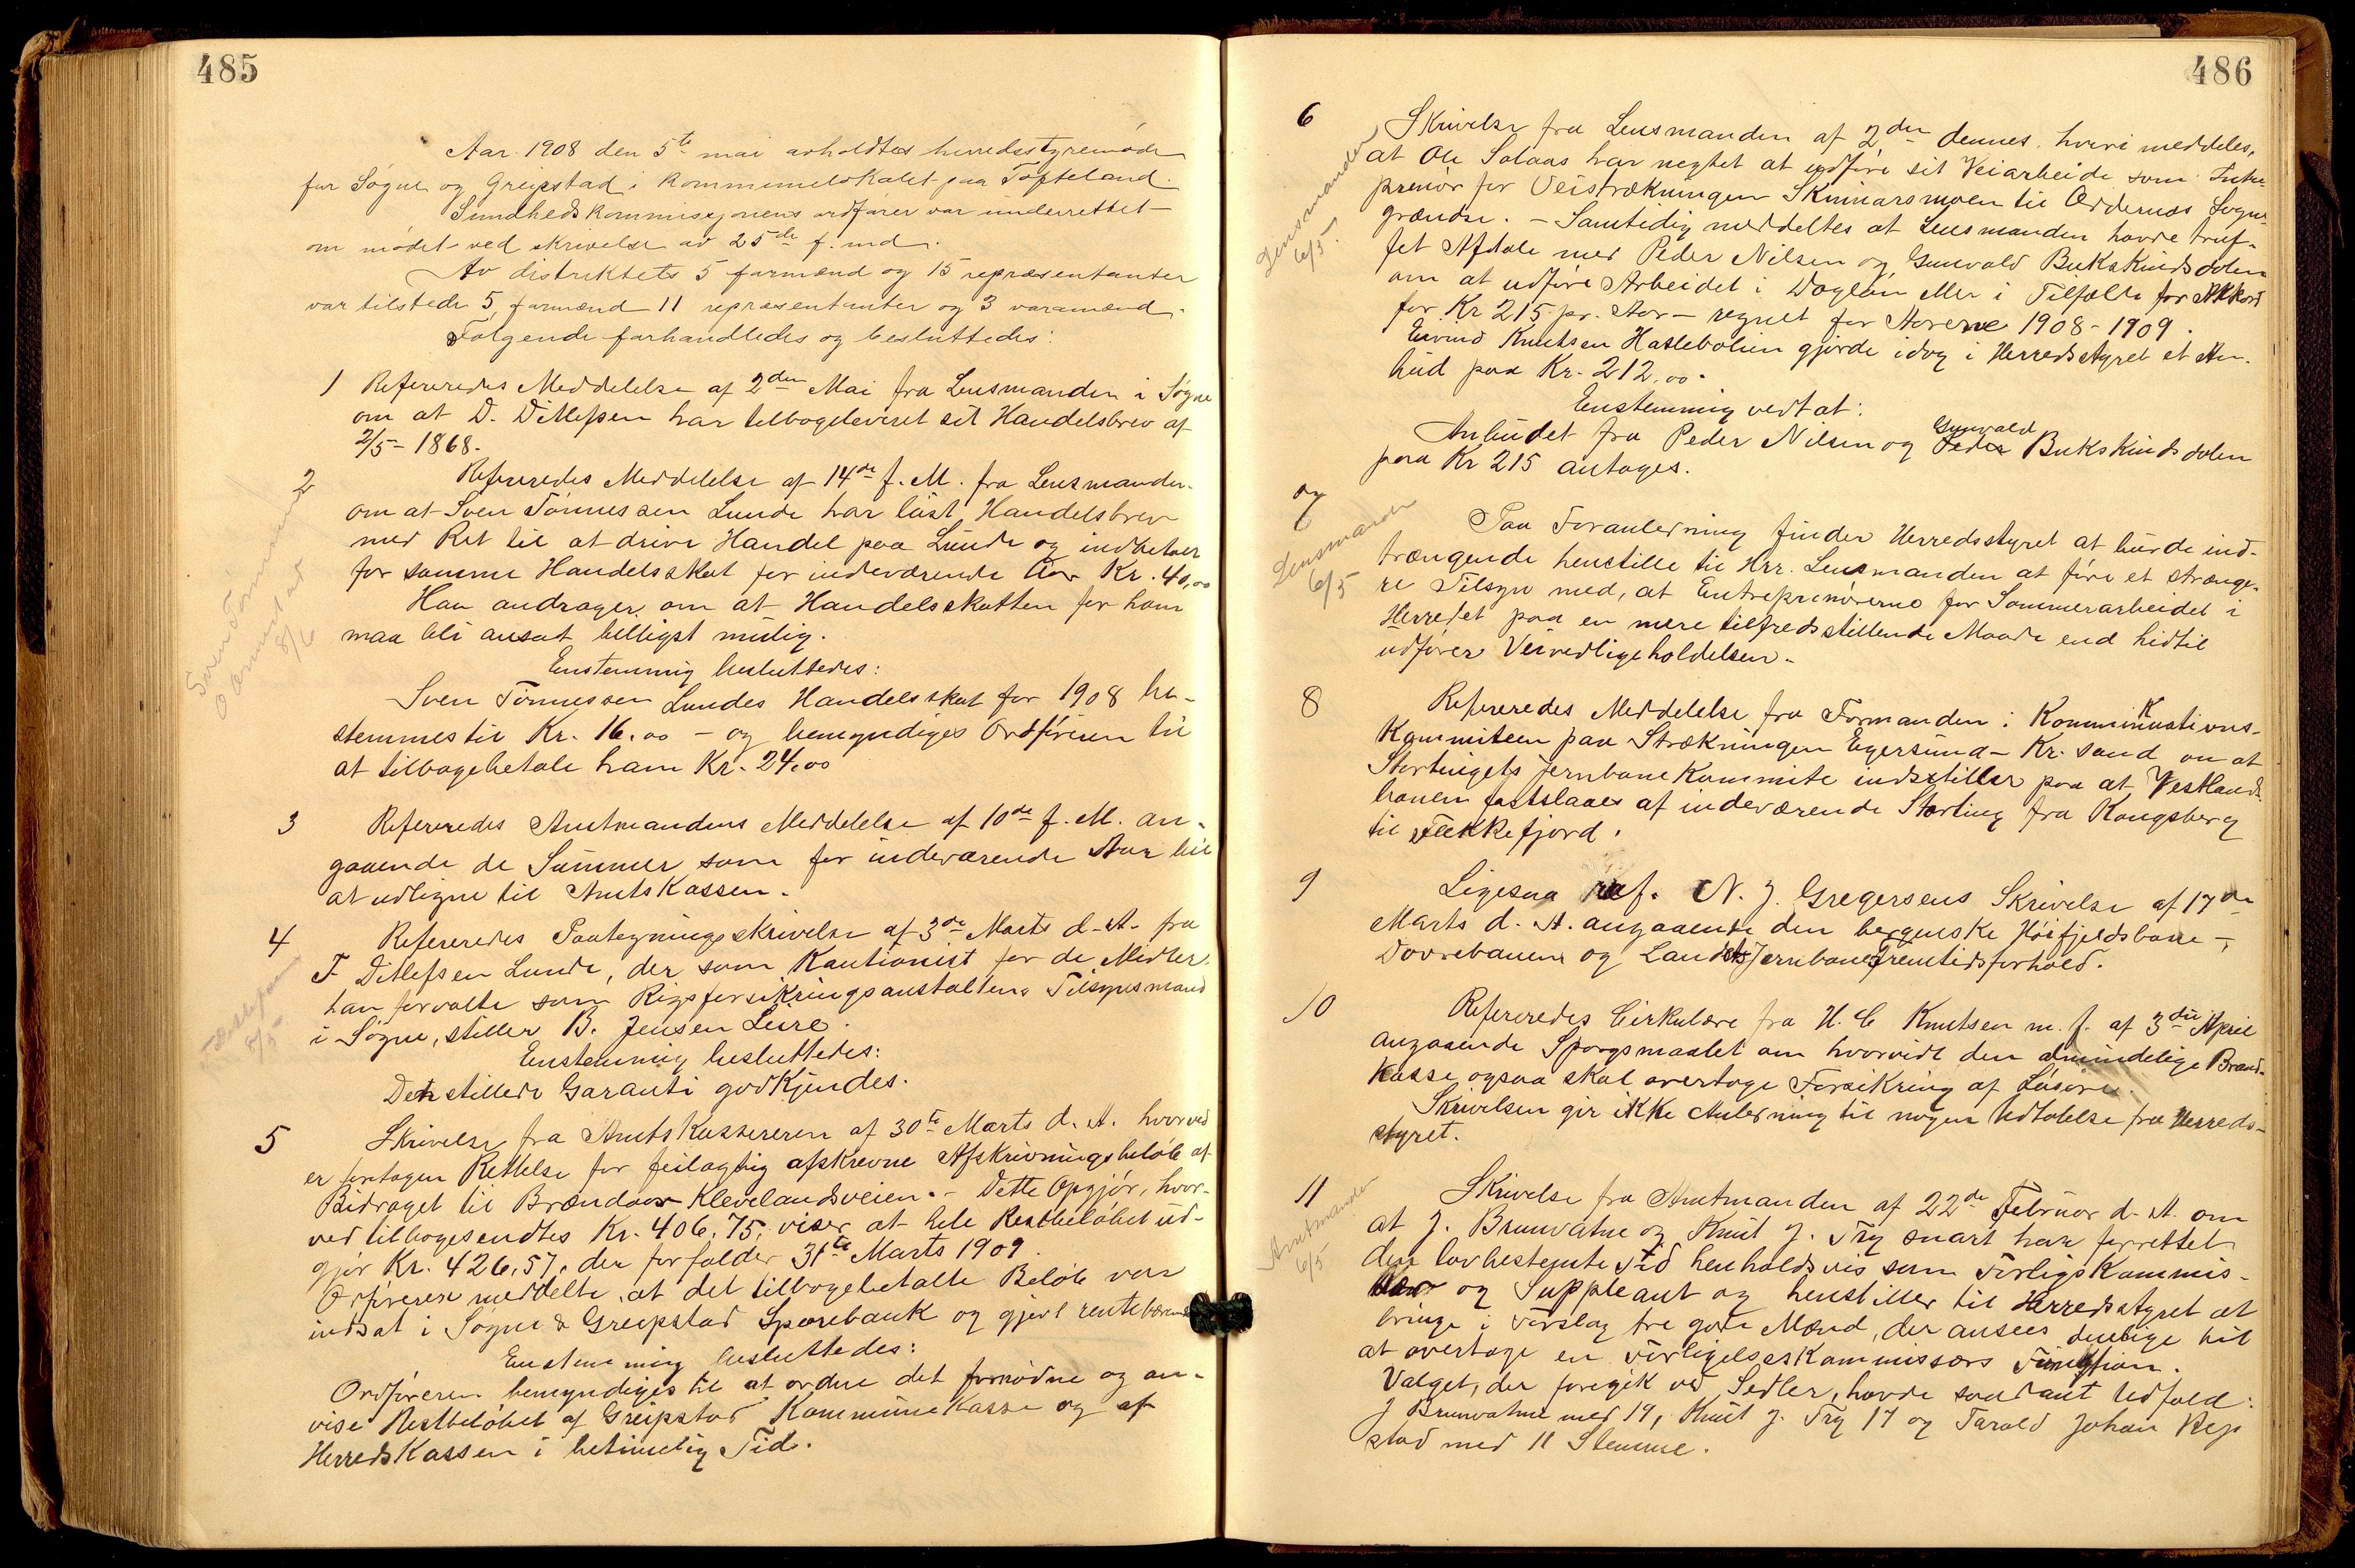 485
Aar 1908 den 5te mai avholdtes herredsstyremøde
for Søgne og Greipstad i kommunelokalet paa Tofteland.
Sundhedskommissjonens ordfører var underrettet
om mødet ved skrivelse av 25de f. md.
Av distriktets 5 formænd og 15 repræsentanter
var tilstede 5 formænd 11 repræsentanter og 3 varamænd.
Følgende forhandledes og besluttedes:
1 Refereredes Meddelelse af 2den Mai fra Lensmanden i Søgne
om at D. Ditlefsen har tilbageleveret sit Handelsbrev af
2/5 - 1868.
2 Refereredes Meddelelse af 14de f. M. fra Lensmanden
om at Sven Tønnessen Lunde har løst Handelsbrev
med Ret til at drive Handel paa Lunde og indbetalt
for samme Handelsskat for indeværende Aar Kr. 40,00
Han andrager om at Handelsskatten for ham
maa bli ansat billigst mulig.
Enstemmig besluttedes:
Sven Tønnessen Lundes Handelsskat for 1908 be-
stemmes til Kr. 16.00 - og bemyndiges Ordføreren til
at tilbagebetale ham Kr. 24.00
3 Refereredes Amtmandens Meddelelse af 10de f. M. an-
gaaende de Summer som for indeværende Aar blir
at udligne til Amtskassen.
4 Refereredes Paategningsskrivelse af 3de Marts d. A. fra
F Ditlefsen Lunde, der som Kautionist for de Midler
han forvalte som Rigsforsikringsanstaltens Tilsynsmand
i Søgne, stiller B. Jensen Leire.
Enstemmig besluttedes:
Den stillede Garanti godkjendes.
8/5
5 Skrivelse fra Amtskassereren af 30te Marts d. A. hvorved
er foretagen Rettelse for feilagtig afskrevne Afskrivningsbeløb af
Bidraget til Brændaas-Klevelandsveien. - Dette Opgjør, hvor-
ved tilbagesendtes Kr. 406,75, viser, at hele Restbeløbet ud-
gjør Kr. 426,57, der forfalder 31te Marts 1909.
Ordføreren meddelte, at det tilbagebetalte Beløb var
indsat i Søgne & Greipstad Sparebank og gjort rentebærende
Enstemmig besluttedes:
Ordføreren bemyndiges til at ordne det fornødne og an-
vise Restbeløbet af Greipstad Kommunekasse og af
Herredskassen i betimelig Tid.
486
Lensmanden
6/5.
6 Skrivelse fra Lensmanden af 2den dennes, hvori meddeles,
at Ole Solaas har negtet at udføre sit Veiarbeide som Entre-
prenør for Veistrækningen Skinnarsmoen til Oddernæs Sogne-
grændse. - Samtidig meddeltes at Lensmanden havde truf-
fet Aftale med Peder Nilsen og Gunvald Bukskindsdalen
om at udføre Arbeidet i Dagløn eller i Tilfælde for Akkord
for Kr 215 pr. Aar - regnet for Aarene 1908-1909.
Eivind Knutsen Haslebolien gjorde idag i Herredsstyret et An-
bud paa Kr. 212,00.
Enstemmig vedtat:
Anbudet fra Peder Nilsen og Gunvald Bukskindsdalen
paa Kr 215 antages.
Lensmanden
6/5
7 Paa Foranledning finder Herredsstyret at burde ind-
trængende henstille til Hrr. Lensmanden at føre et strænge-
re Tilsyn med, at Entreprenørerne for Sommerarbeidet i
Herredet paa en mere tilfredsstillende Maade end hidtil
udfører Veivedligeholdelsen.
8 Refereredes Meddelelse fra Formanden i Kommunikations-
Kommiteen paa Strækningen Egersund - Kr. sand om at
Stortingets Jernbanekommite indstiller paa at Vestlands-
banen fastslaaes af indeværende Storting fra Kongsberg
til Flekkefjord.
9 Ligesaa ref. N. J. Gregersens Skrivelse af 17de
Marts d. A. angaaende den bergenske Høifjeldsbane -,
Dovrebanen og Landets Jernbanes Fremtidsforhold.
10 Refereredes Cirkulære fra H. C Knutsen m. f. af 3die April
angaaende Spørgsmaalet om hvorvidt den almindelige Brand-
kasse ogsaa skal overtage Forsikring af Løsøre.
Skrivelsen gir ikke Anledning til nogen Udtalelse fra Herreds-
styret.
Amtmanden
6/5
11 Skrivelse fra Amtmanden af 22de Februar d. A. om
at J. Brunvatne og Knut J. Try snart har forrettet
den lovbestemte Tid henholdsvis som Forligskommis-
sær og Suppleant og henstiller til Herredsstyret at
bringe i Forslag tre gode Mænd, der ansees duelige til
at overtage en Forligelseskommissærs Funktion.
Valget, der foregik ved Sedler, havde saadant Udfald:
J Brunvatne med 19, Knut J. Try 17 og Tarald Johan Rep
stad med 11 Stemme.